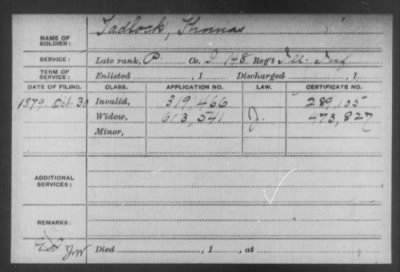 NAME OF SOLDIER: Tadlock, Thomas
SERVICE: Late rank, P. Co. I 148 Reg't Ill. Inf
TERM OF SERVICE: Enlisted , 1 Discharged , 1.
DATE OF FILING. CLASS. APPLICATION NO. LAW. CERTIFICATE NO.
1879 Oct. 30 Invalid, 319,466 289,135
Widow, 613,541 J. 473,827
Minor,
ADDITIONAL SERVICES:
REMARKS:
Died , 1 , at